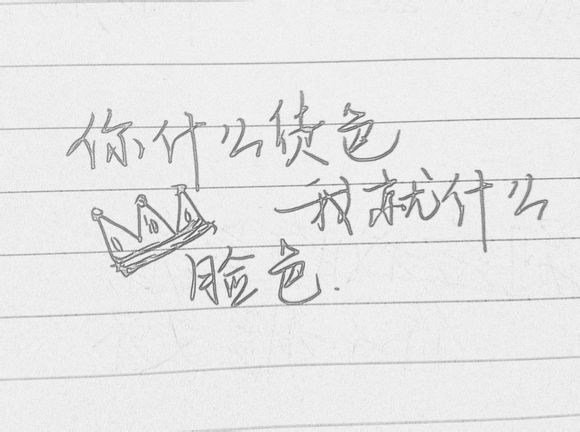 你什么货色
我就什么
脸色.